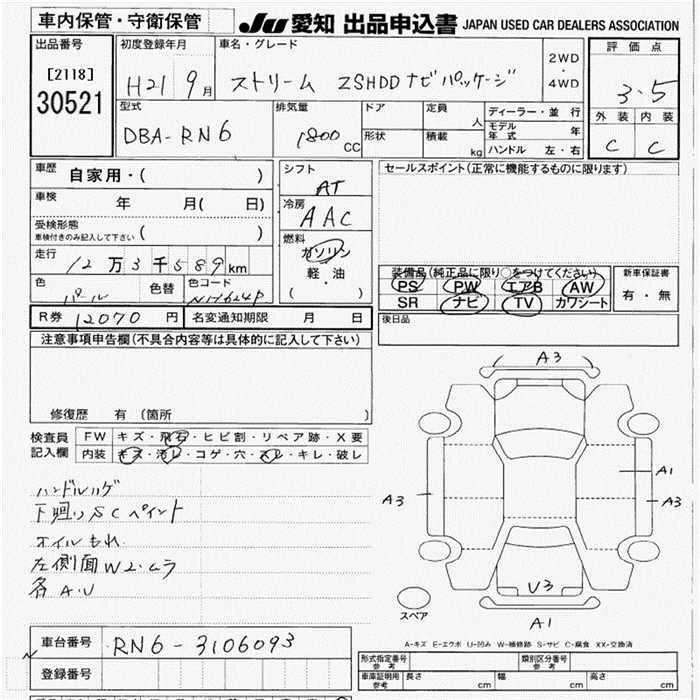 車内保管・守衛保管
JU 愛知 出品申込書 JAPAN USED CAR DEALERS ASSOCIATION
出品番号
[2118]
30521
初度登録年月
H21 9月
車名・グレード
ストリーム ZSHDDナビパッケージ
2WD
・
4WD
評価点
3.5
外装 内装
C C
型式
DBA-RN6
排気量
1800cc
ドア
形状
定員 人
積載 kg
ディーラー・並行
モデル年式 年
ハンドル 左・右
車歴
自家用・( )
車検
年 月( 日)
受検形態
車検付きのみ記入して下さい ( )
走行
12万3千589km
色
パール
色替
色コード
NH624P
シフト
AT
冷房
AAC
燃料
ガソリン
軽・油
( )
セールスポイント(正常に機能するものに限ります)
装備品(純正品に限り○をつけてください)
PS PW エアB AW
SR ナビ TV カワシート
新車保証書
有・無
R券 12070円
名変通知期限 月 日
後日品
注意事項申告欄(不具合内容等は具体的に記入して下さい)
修復歴 有 〔箇所 〕
検査員
記入欄
FW キズ・飛石・ヒビ割・リペア跡・X要
内装 キズ・汚レ・コゲ・穴・スレ・キレ・破レ
ハンドルハゲ
下廻りSCペイント
オイルもれ
左側面W2.ムラ
各A.U
A3
A1
A3
A3
V3
A1
スペア
A-キズ E-エクボ U-凹み W-補修跡 S-サビ C-腐食 XX-交換済
車台番号 RN6-3106093
登録番号
形式指定番号
参考
類別区分番号
参考
車庫証明用
参考
長さ cm 幅 cm 高さ cm